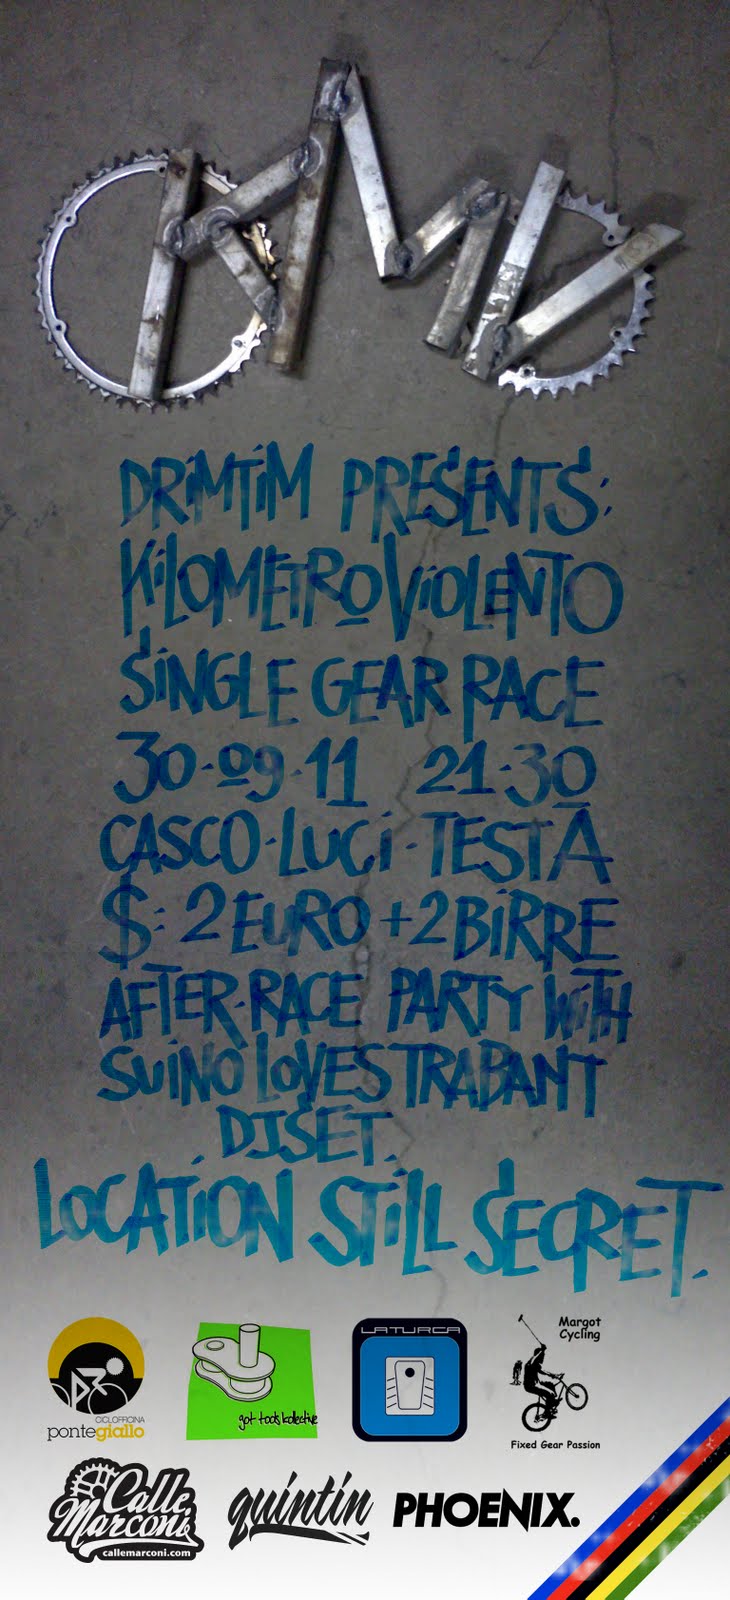 KMV
DRIMTIM PRESENTS:
KILOMETRO VIOLENTO
SINGLE GEAR RACE
30·09·11 21·30
CASCO·LUCI·TESTA
$: 2 EURO + 2 BIRRE
AFTER·RACE PARTY WITH
SUINO LOVES TRABANT
DJSET.
LOCATION STILL SECRET.
CICLOFFICINA
pontegiallo
got tools kollective
LATURCA
Margot
Cycling
Fixed Gear Passion
Calle
Marconi
callemarconi.com
quintin
PHOENIX.